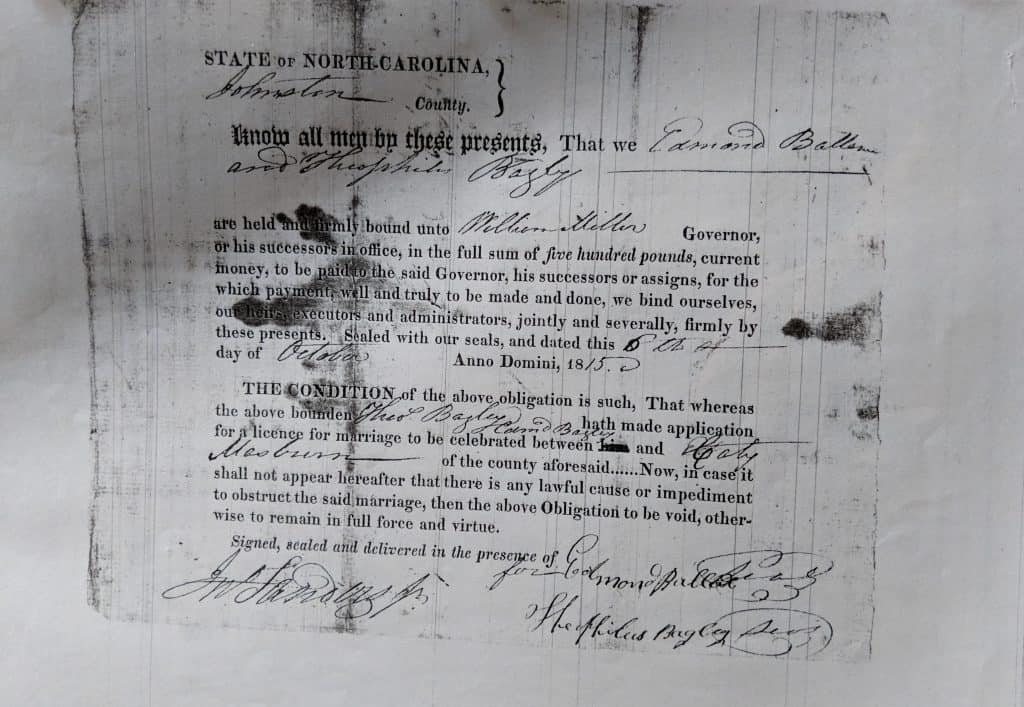 STATE OF NORTH-CAROLINA,
Johnston County.
Know all men by these presents, That we Edmond
and Theophilus Bagley
are held and firmly bound unto William Miller Governor,
or his successors in office, in the full sum of five hundred pounds, current
money, to be paid to the said Governor, his successors or assigns, for the
which payment, well and truly to be made and done, we bind ourselves,
our heirs, executors and administrators, jointly and severally, firmly by
these presents. Sealed with our seals, and dated this
day of October Anno Domini, 1815.
THE CONDITION of the above obligation is such, That whereas
the above bounden Theo. Bagley hath made application
Edmd Bagley
for a licence for marriage to be celebrated between him and
of the county aforesaid......Now, in case it
shall not appear hereafter that there is any lawful cause or impediment
to obstruct the said marriage, then the above Obligation to be void, other-
wise to remain in full force and virtue.
Signed, sealed and delivered in the presence of
for Edmond
Theophilus Bagley